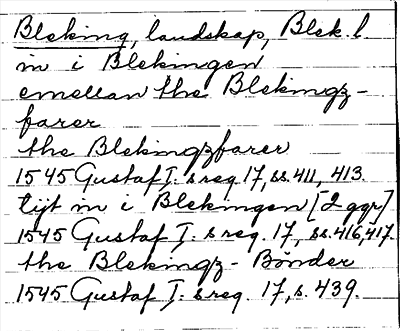 Bleking, landskap, Blek. l.
in i Blekingen
emellan the Blekingz-
farer
the Blekingzfarer
1545 Gustaf I: s reg. 17, ss. 411, 413.
tijt in i Blekingen [2 ggr]
1545 Gustaf I: s reg. 17, ss. 416, 417.
the Blekingz-Bönder
1545 Gustaf I: s reg. 17, s. 439.